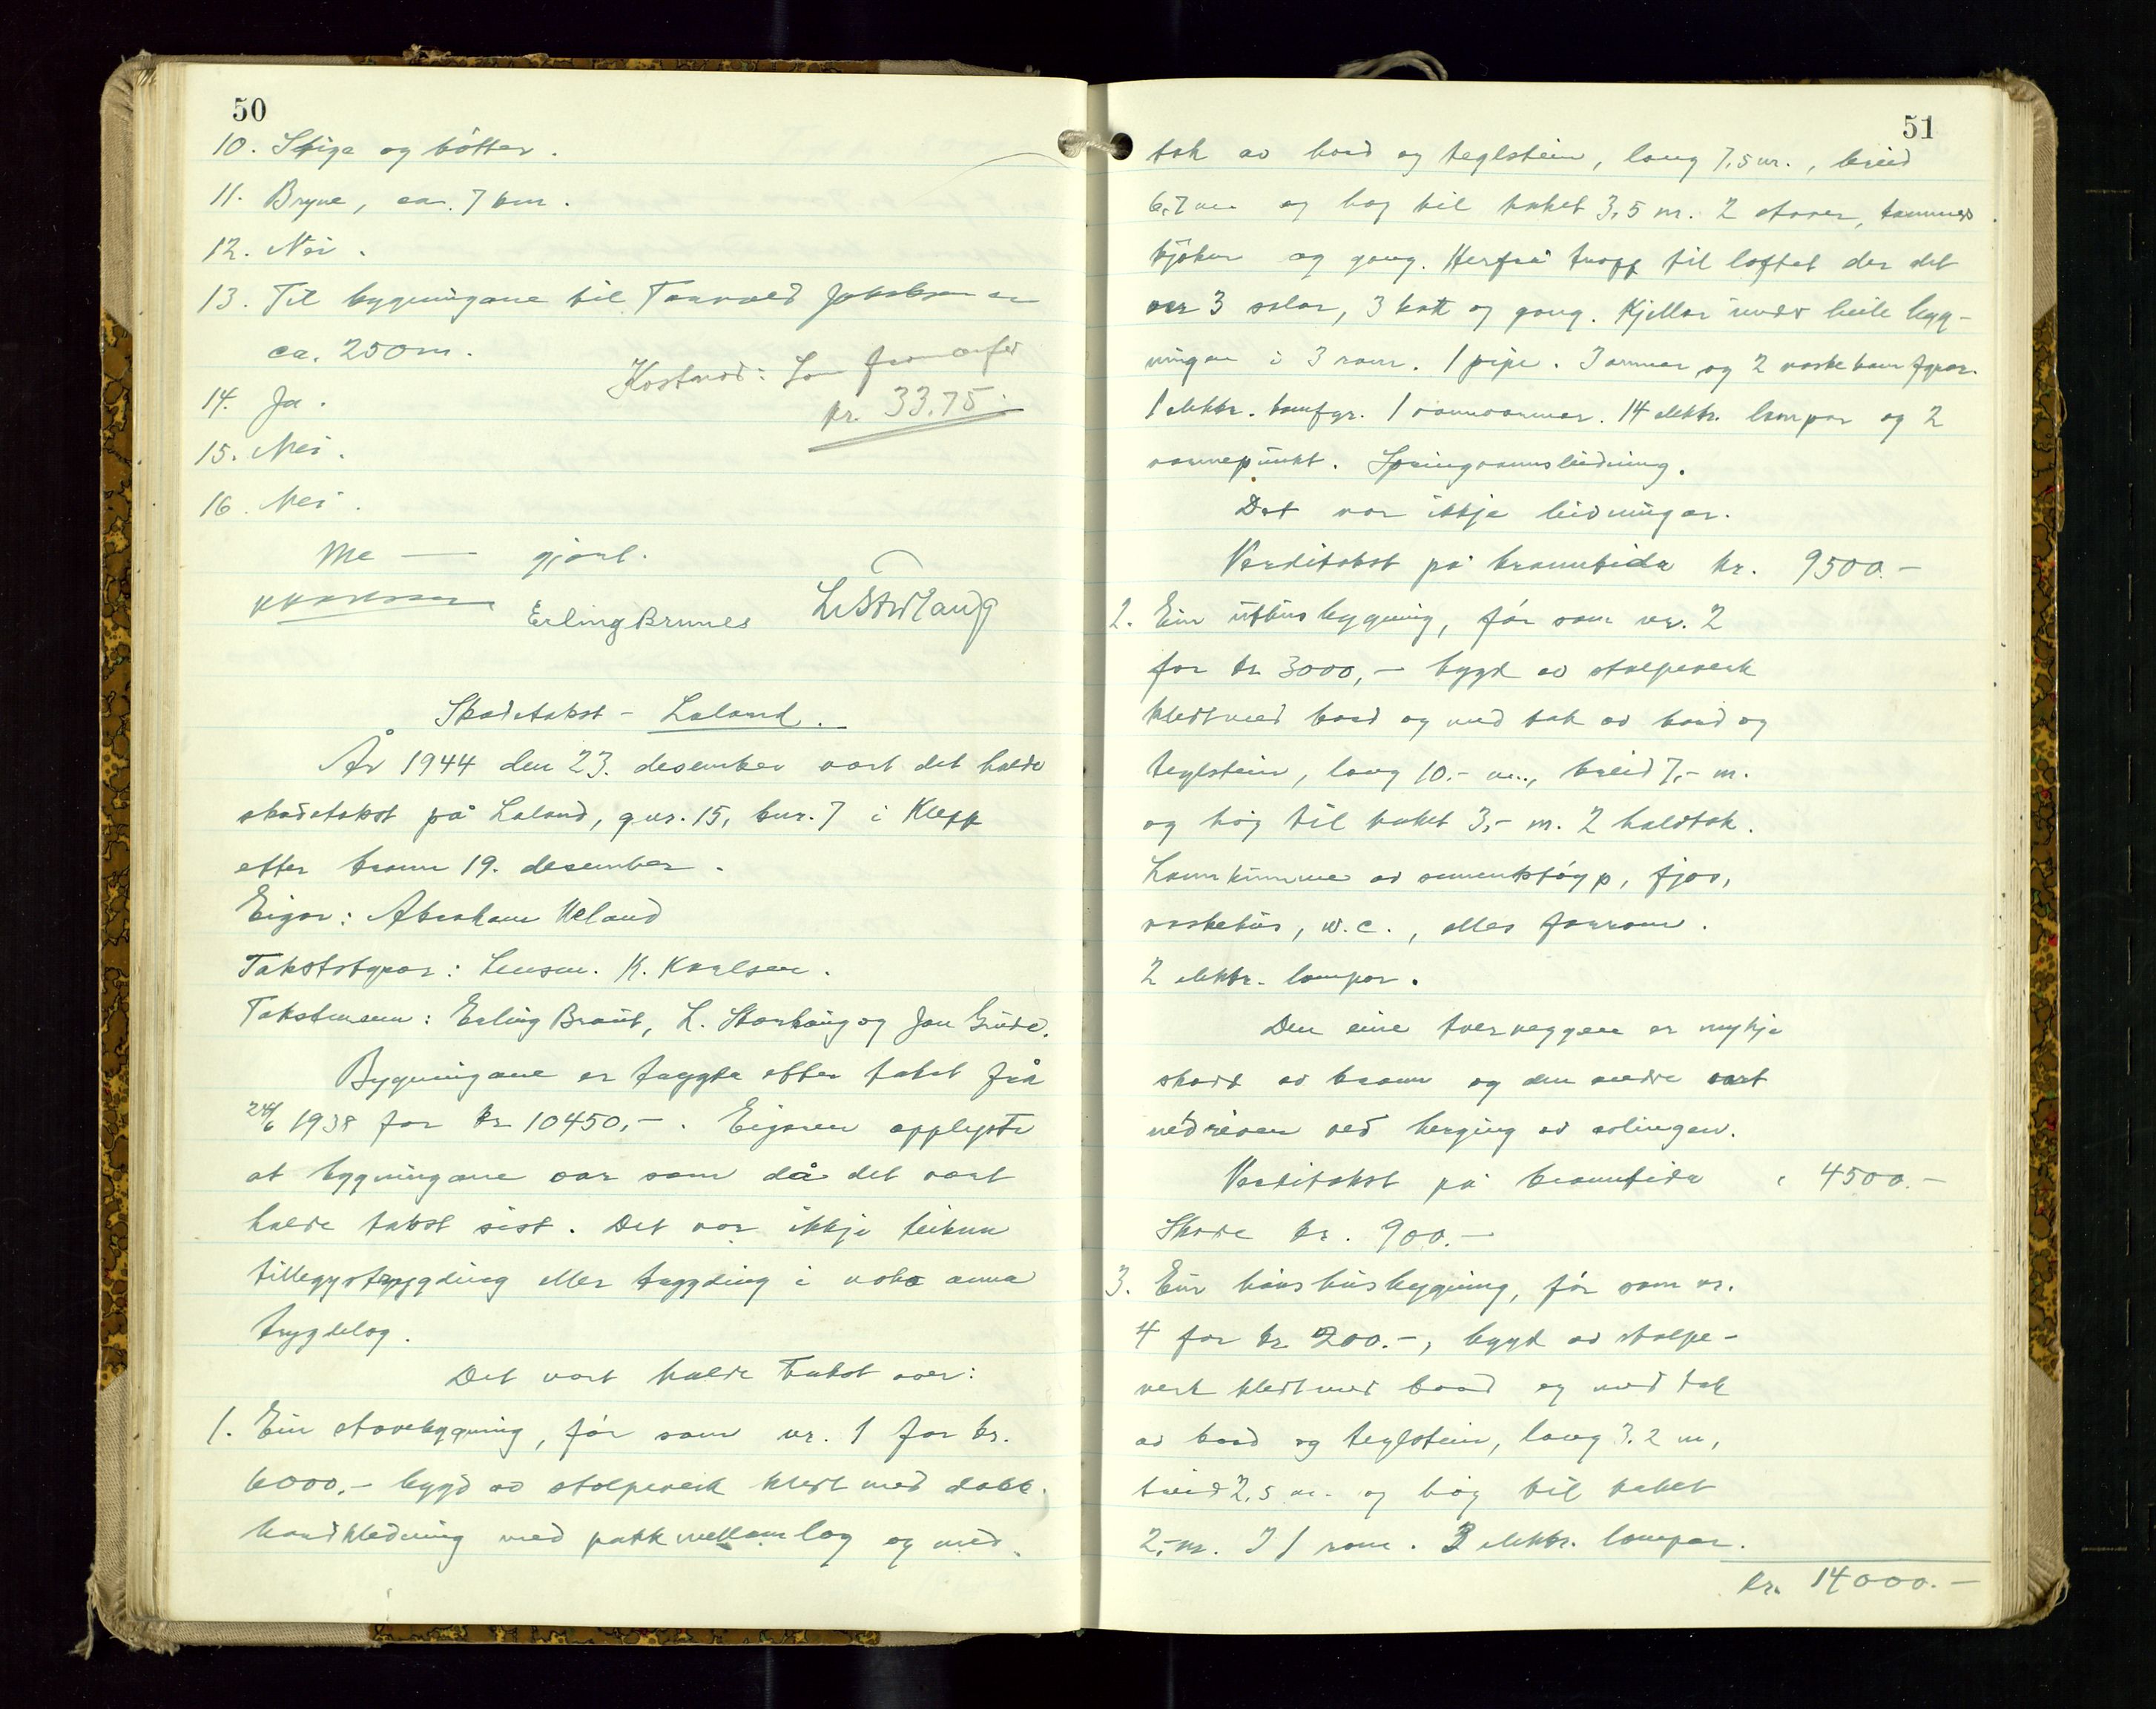 50
10. Stige og bøtter.
11. Bryne, ca. 7 km.
12. Nei.
13. Til bygningane til Torvald Jakobsen er
ca. 250 m.
Kostnad: Som framanfor
kr. 33.75.
14. Ja.
15. Nei.
16. Nei.
Me — gjort.
K Karlsen
Erling Brunes L. Storhaug
Skadetakst - Laland.
År 1944 den 23. desember vart det halde
skadetakst på Laland, gnr. 15, bnr. 7 i Klepp
etter brann 19. desember.
Eigar: Abraham Ueland
Takststyrar: Lensm. K. Karlsen.
Takstmenn: Erling Braut, L. Storhaug og Jon Grude.
Bygningane er trygda etter takst frå
24/6 1938 for kr 10450,-. Eigaren opplyste
at bygningane var som då det vart
halde takst sist. Det var ikkje teikna
tilleggstrygding eller trygding i noko anna
trygdelag.
Det vart halde takst over:
1. Ein stovebygning, før som nr. 1 for kr.
6000,- bygd av stolpeverk kledt med dobb.
bordkledning med papp mellomlag og med
51
tak av bord og teglstein, lang 7,5 m., breid
6,7 m og høg til taket 3,5 m. 2 stover, kammers
kjøken og gang. Herfrå trapp til loftet der det
var 3 salar, 3 kott og gang. Kjellar under heile byg-
ningen i 3 rom. 1 pipe. 3 omnar og 2 vaske komfyrar.
1 elektr. komfyr. 1 vannvarmer. 14 elektr. lampar og 2
varmepunkt. Springvannsleidning.
Det var ikkje leidningar.
Verditakst på branntida kr. 9500.-
2. Ein uthusbygning, før som nr. 2
for kr 3000,- bygd av stolpeverk
kledt med bord og med tak av bord og
teglstein, lang 10.- m., breid 7,- m.
og høg til taket 3,- m. 2 haldtak.
Landkumme av sementstøyp, fjos,
vaskehus, w.c., elles forrom.
2 elektr. lampar.
Den eine tverveggen er mykje
skadt av brann og den andre vart
nedriven ved berging av avlingen.
Verditakst på branntida " 4500.-
Skade kr. 900.-
3. Ein hønshusbygning, før som nr.
4 for kr 200.-, bygd av stolpe-
verk kledt med bord og med tak
av bord og teglstein, lang 3.2 m,
breid 2,5 m. og høg til taket
2,- m. I 1 rom. 3 elektr. lampar.
kr. 14000.-